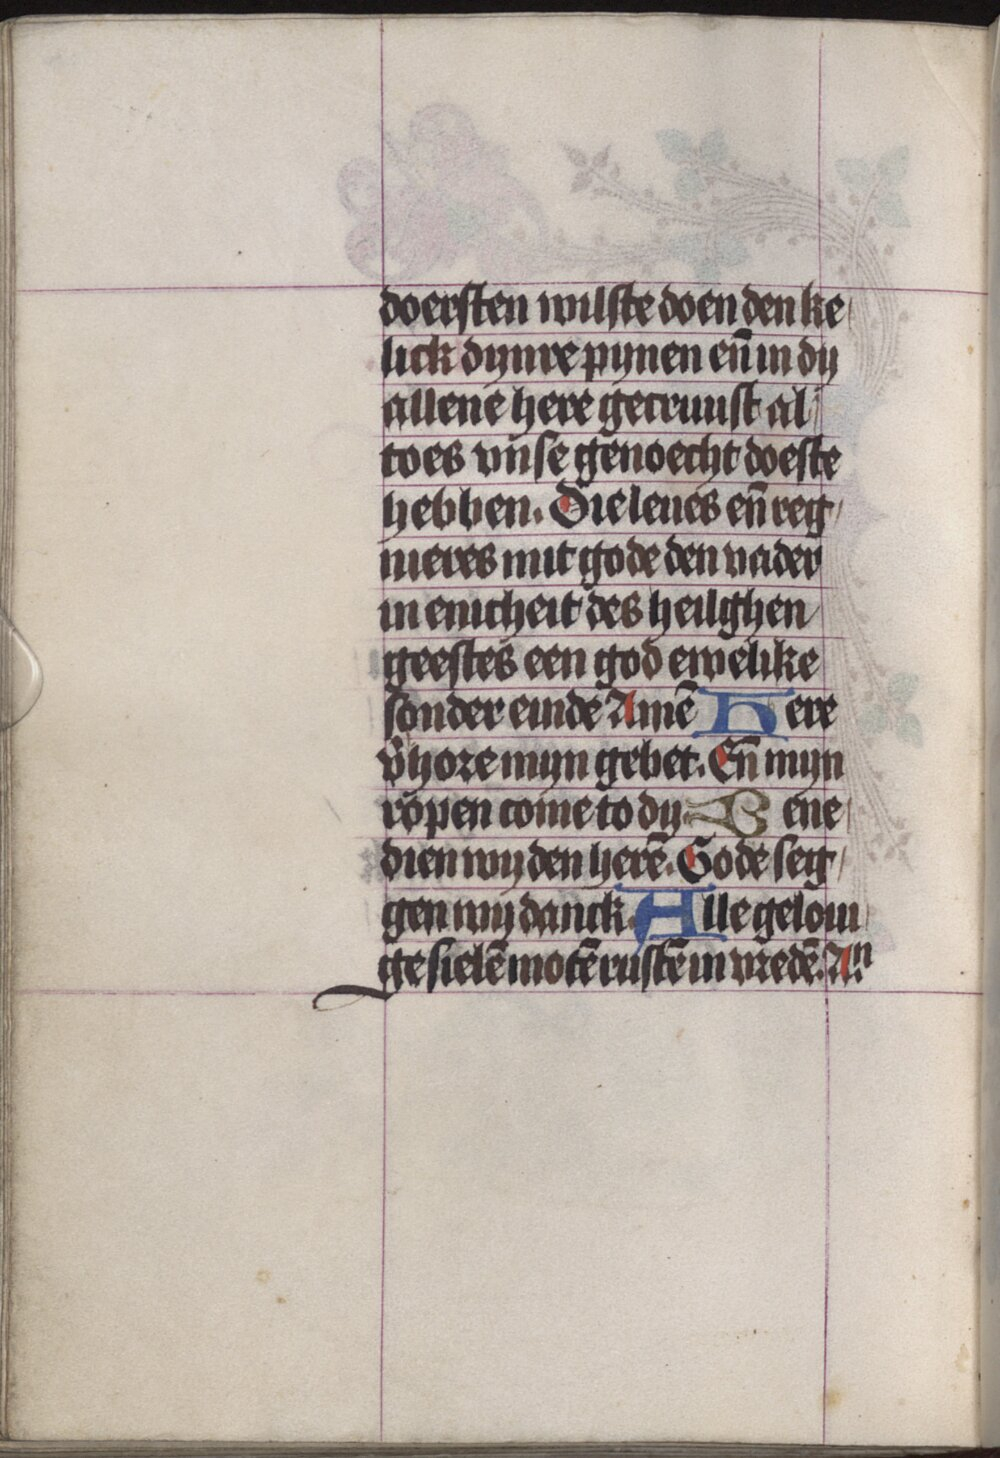 doersten wilste doen den ke
lick dynre pynen en̄ in dy
allene here getruust al
toes vnse genoecht doeste
hebben. Die leues en̄ reg
nieres mit gode den vader
in enicheit des heilghen
geestes een god ewelike
sonder einde Amē Here
v̄hore myn gebet. En̄ myn
ropen come to dy. Bene
dien wy den herē. Gode seg
gen wy danck. Alle geloui
ge sielē motē rustē in vredē. Am̄